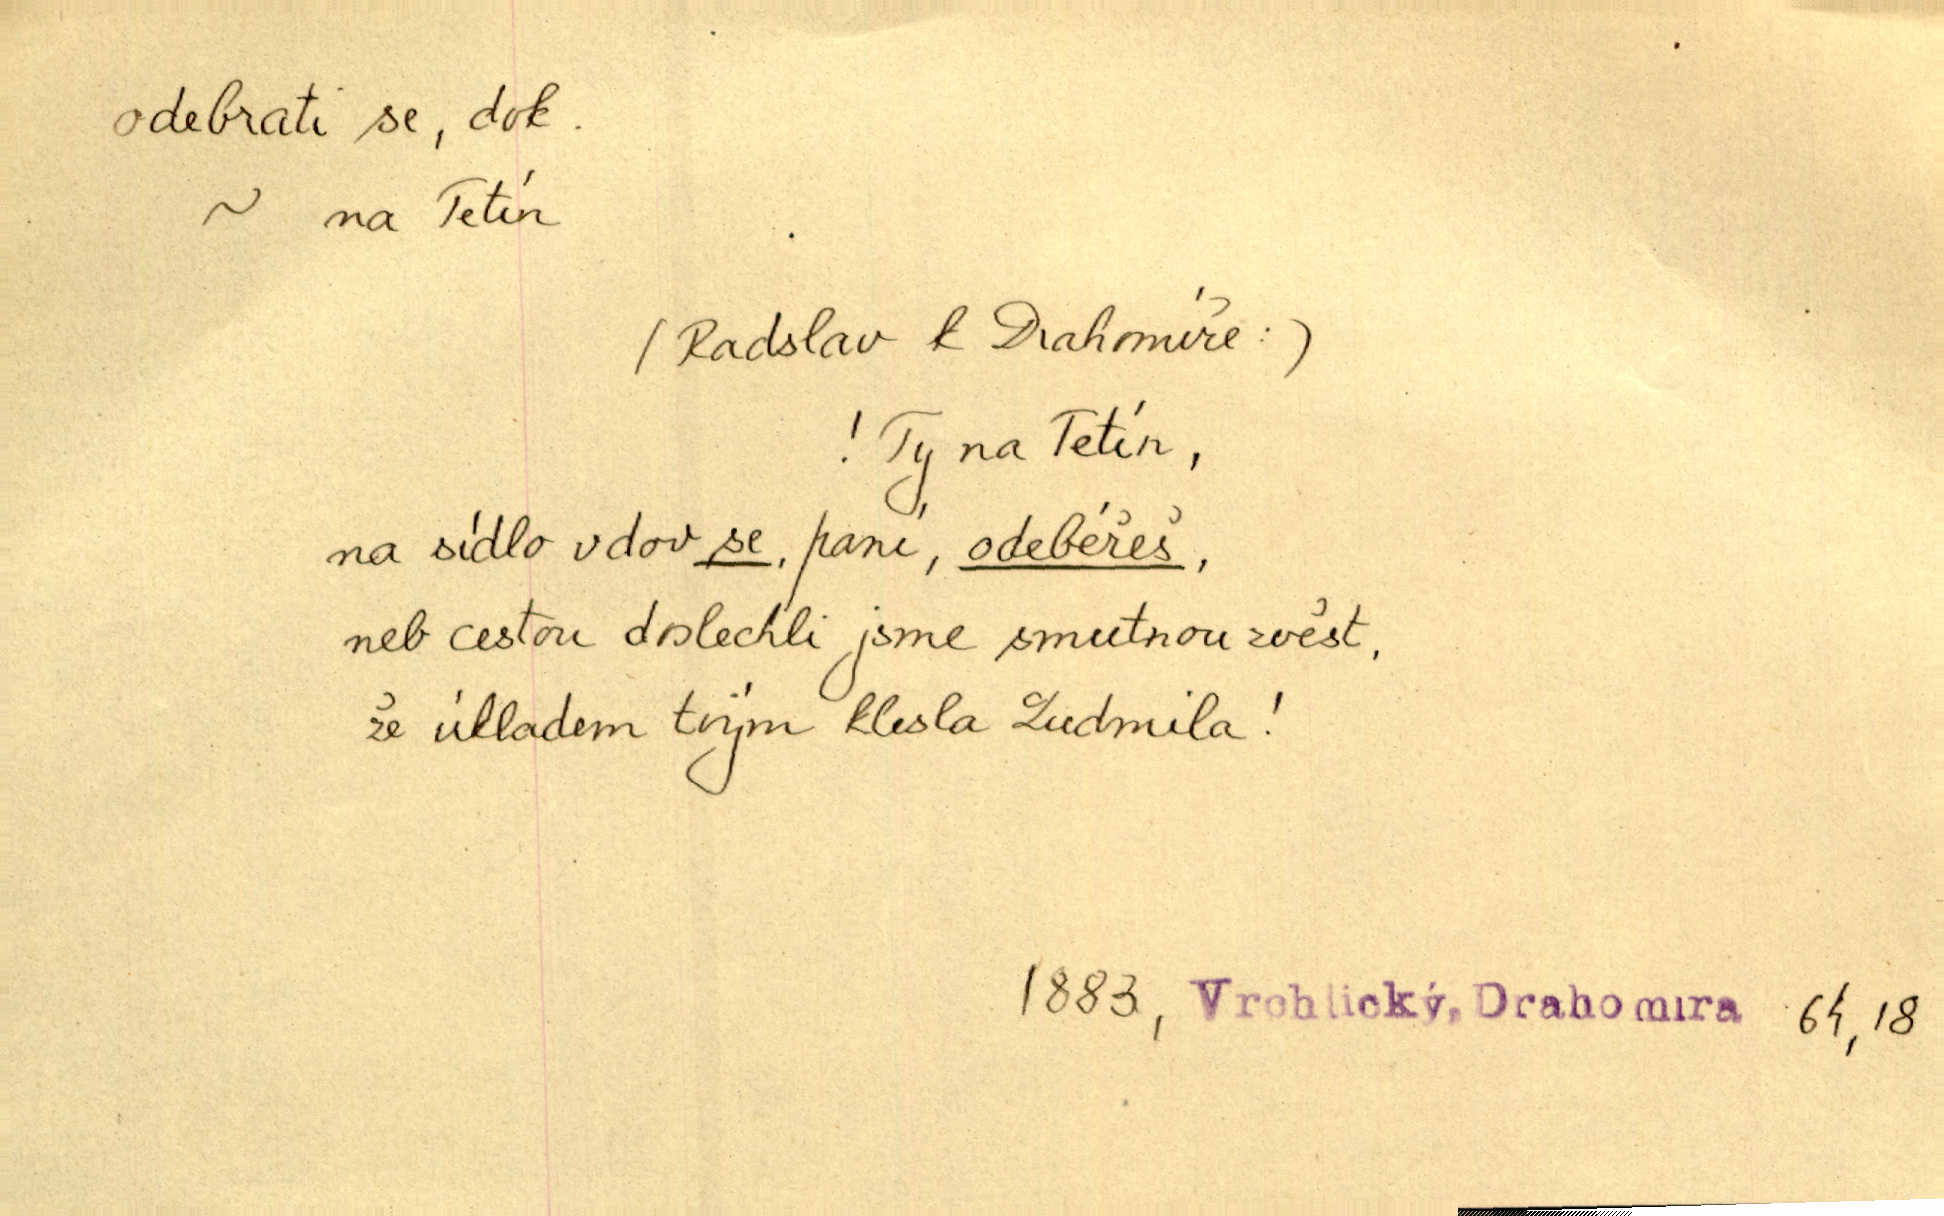 odebrati se, dok.
~ na Tetín
(Radslav k Drahomíře:)
! Ty na Tetín,
na sídlo vdov se, paní, odebéřeš,
neb cestou doslechli jsme smutnou zvěst,
že úkladem tvým klesla Ludmila!
1883, Vrchlický, Drahomíra 64,18